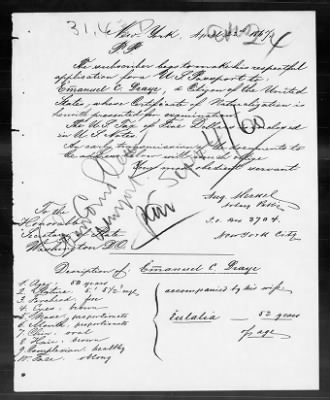 New-York, April 23d 1867
The subscriber begs to make his respectful
application for a U S Passport to
Emanuel C. Draye, a Citizen of the United
States, whose Certificate of Naturalization is
herewith presented for examination.
The U S Tax of Five Dollars is enclosed
in U S Notes.
An early transmission of the documents to
be applied for will much oblige
Your most obedient servant
Aug. Merkel
Notary Public
P.O. Box 3704.
New York City
To the
Honorable
Secretary of State
Washington D.C.
Description of Emanuel C. Draye
1. Age, 50 years
2. Stature 5' 5½ "
3. Forehead, free
4. Eyes, brown
5. Nose, proportionate
6. Mouth, proportionate
7. Chin, oval
8. Hair, brown
9. Complexion, healthy
10. Face, oblong
accompanied by his wife
Eulalia — 52 years
of age